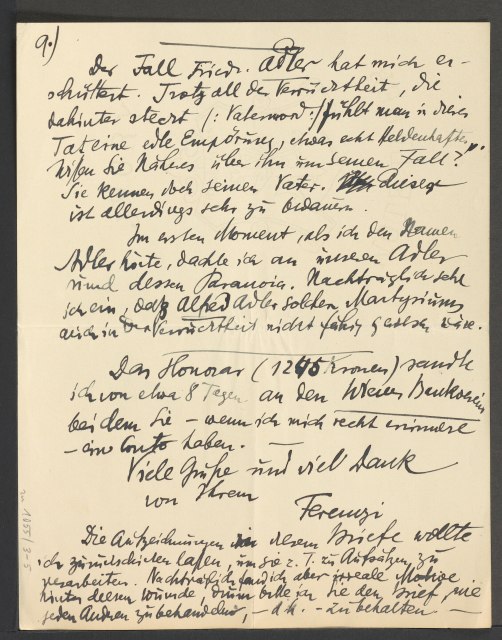 9.)
Der Fall Friedr. Adler hat mich er-
schüttert. Trotz all der Verrücktheit, die
dahinter steckt /: Vatermord :/ fühlt man in dieser
Tat eine edle Empörung, etwas echt „Heldenhaftes".
Wissen Sie Näheres über ihn und seinen Fall?
Sie kennen doch seinen Vater. Dieser
ist allerdings sehr zu bedauern.
Im ersten Moment, als ich den Namen
Adler hörte, dachte ich an unseren Adler
und dessen Paranoia. Nachträglich sehe
ich ein, daß Alfred Adler solchen Martyriums
auch in der Verrücktheit nicht fähig gewesen wäre.
Das Honorar (1245 Kronen) sandte
ich vor etwa 8 Tagen an den Wiener Bankverein
bei dem Sie – wenn ich mich recht erinnere
– ein Conto haben. –
Viele Grüße und viel Dank
von Ihrem
Ferenczi
Die Aufzeichnungen in diesem Briefe wollte
ich zurückschicken lassen, um sie z. T. zu Aufsätzen zu
verarbeiten. Nachträglich fand ich aber irreale Motive
hinter diesem Wunsche, drum bitte ich Sie den Brief wie
jeden Anderen zu behandeln, – d.h. – zu behalten –